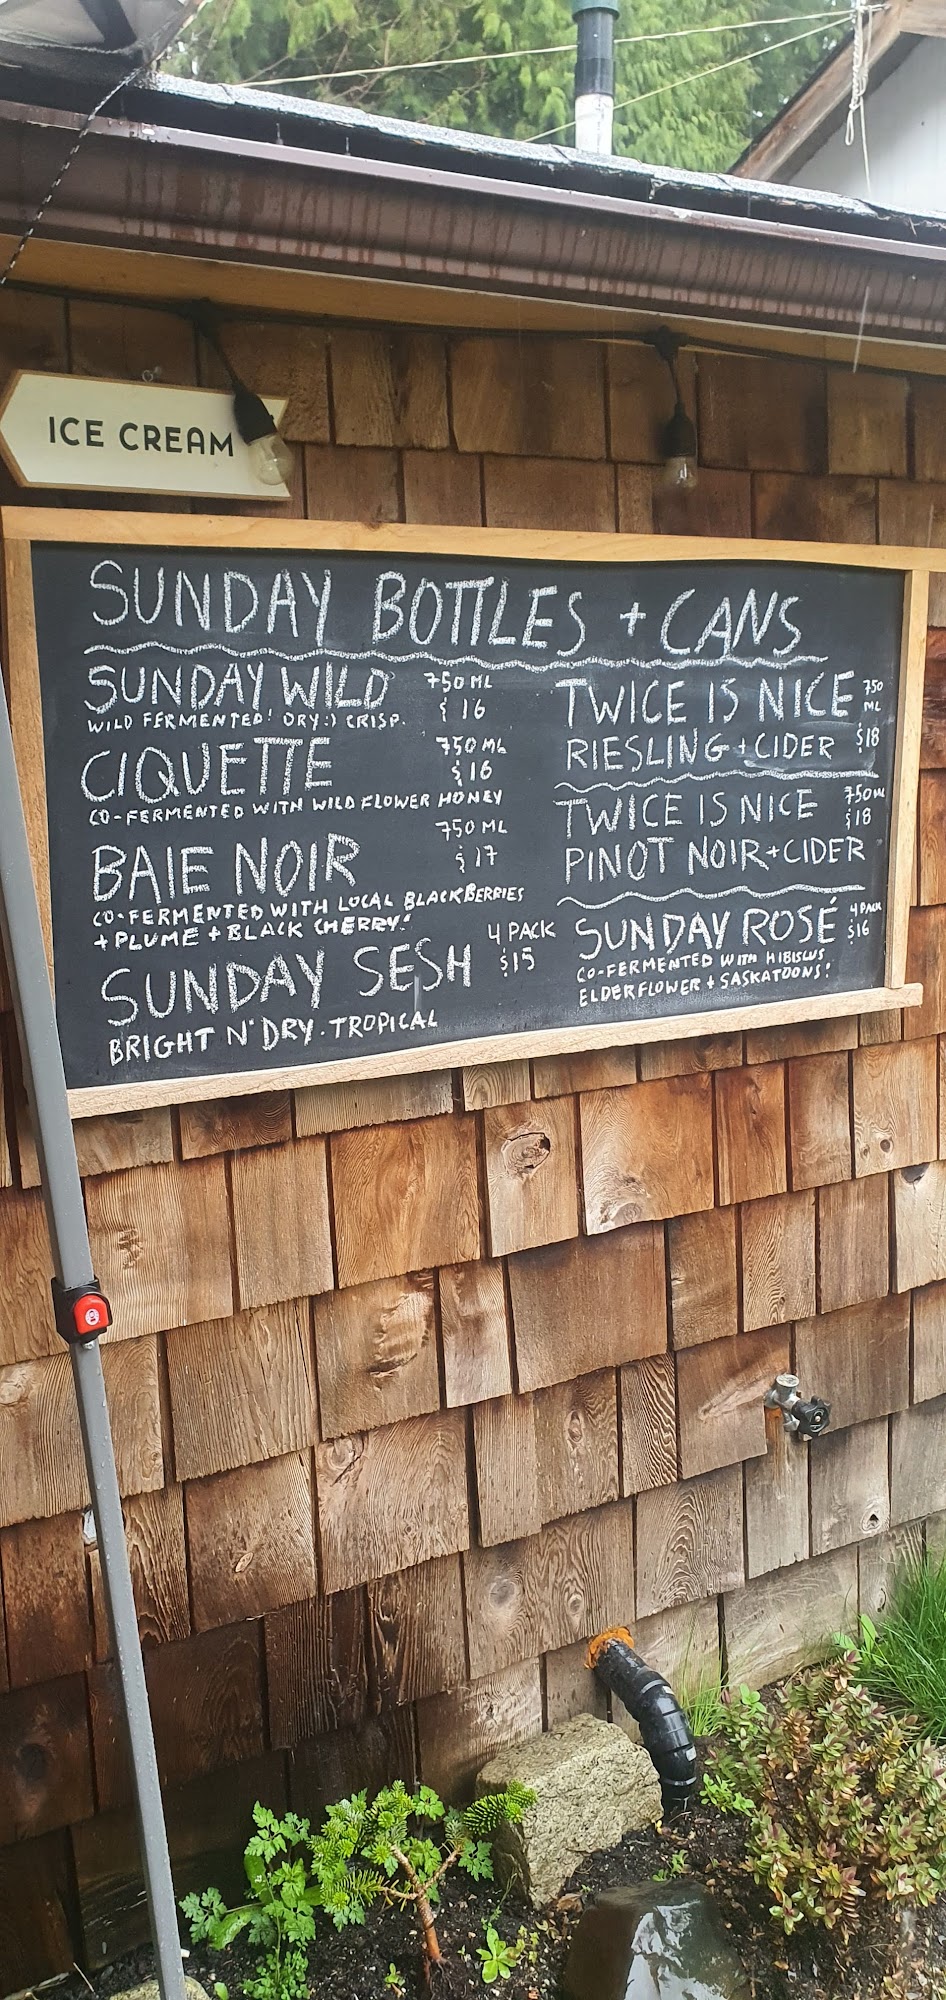 ICE CREAM
SUNDAY BOTTLES + CANS
SUNDAY WILD 750 ML
$16
WILD FERMENTED! DRY :) CRISP.
CIQUETTE 750 ML
$16
CO-FERMENTED WITH WILD FLOWER HONEY
BAIE NOIR 750 ML
$17
CO-FERMENTED WITH LOCAL BLACKBERRIES
+ PLUME + BLACK CHERRY!
SUNDAY SESH 4 PACK
$15
BRIGHT N' DRY. TROPICAL
TWICE IS NICE 750 ML
RIESLING + CIDER $18
TWICE IS NICE 750 ML
$18
PINOT NOIR + CIDER
SUNDAY ROSÉ 4 PACK
$16
CO-FERMENTED WITH HIBISCUS
ELDERFLOWER + SASKATOONS!